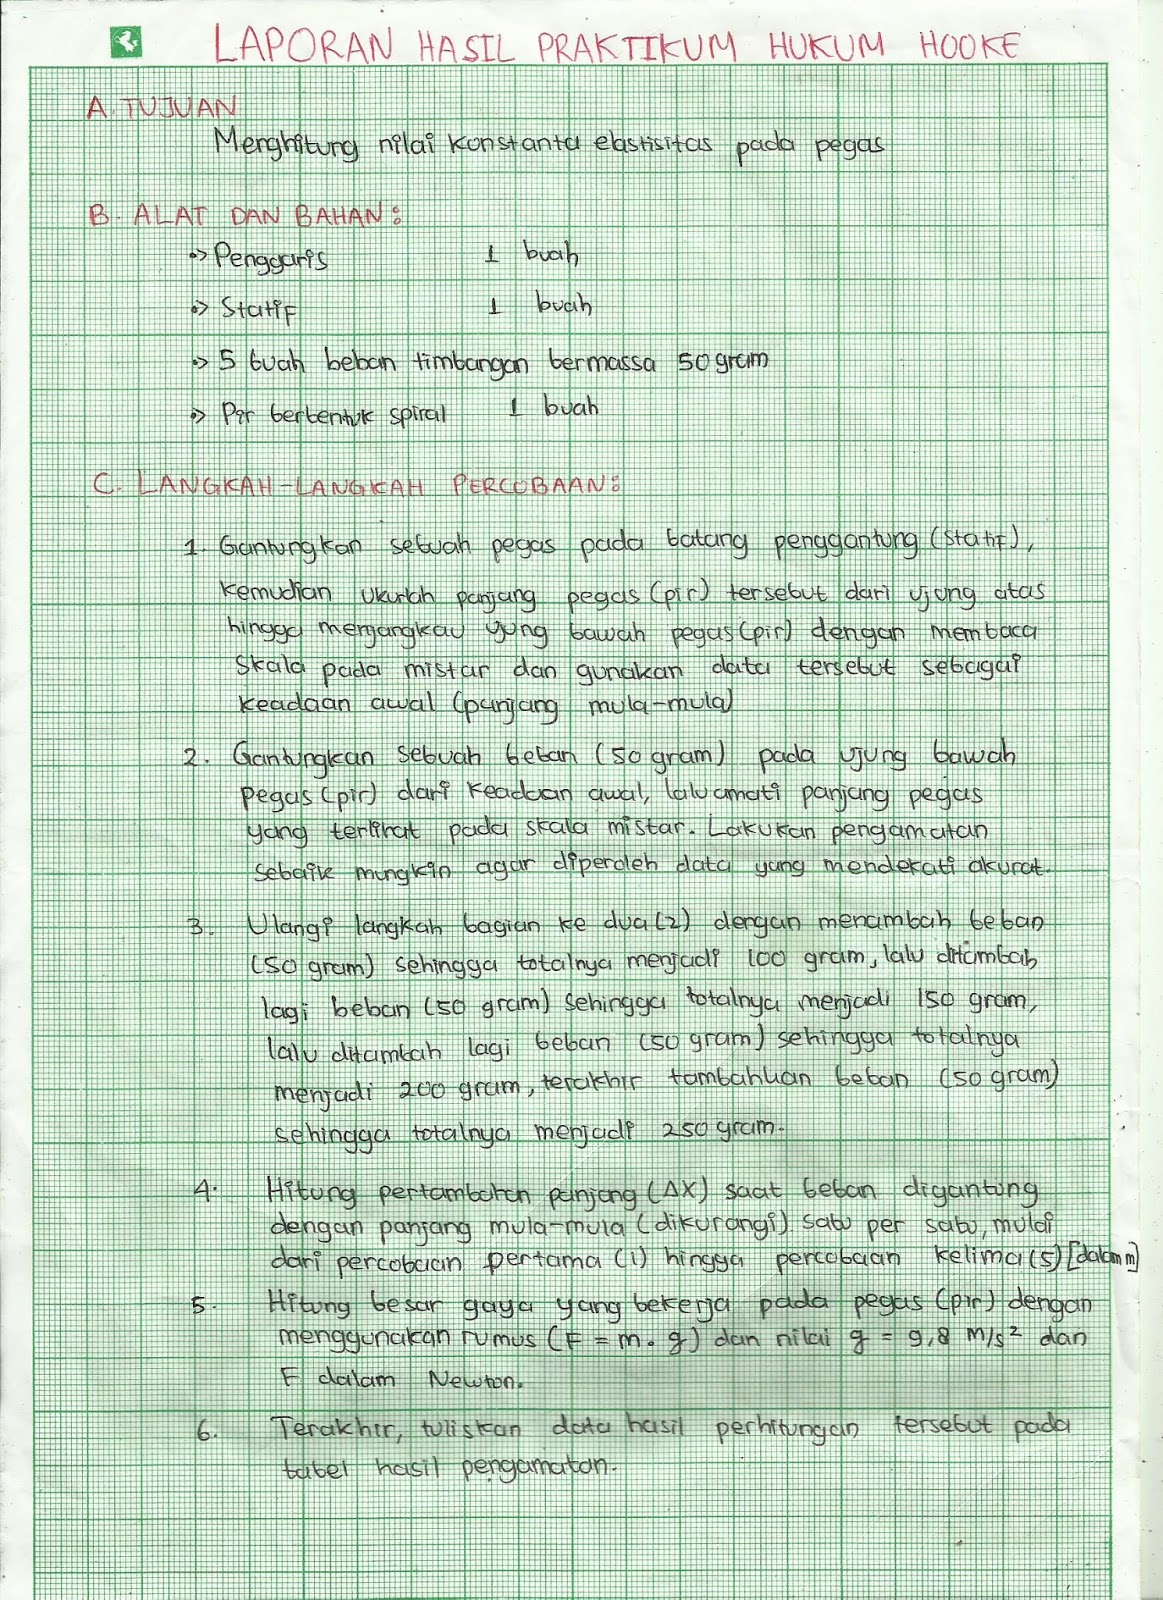 LAPORAN HASIL PRAKTIKUM HUKUM HOOKE
A. TUJUAN
Menghitung nilai konstanta elastisitas pada pegas
B. ALAT DAN BAHAN:
Penggaris 1 buah
Statif 1 buah
5 buah beban timbangan bermassa 50 gram
Pir berbentuk spiral 1 buah
C. LANGKAH-LANGKAH PERCOBAAN:
1. Gantungkan sebuah pegas pada batang penggantung (statif),
kemudian ukurlah panjang pegas (pir) tersebut dari ujong atas
hingga menjangkau ujung bawah pegas (pir) dengan membaca
skala pada mistar dan gunakan data tersebut sebagai
keadaan awal (panjang mula-mula)
2. Gantungkan sebuah beban (50 gram) pada ujung bawah
pegas (pir) dari keadaan awal, lalu amati panjang pegas
yang terlihat pada skala mistar. Lakukan pengamatan
sebaik mungkin agar diperoleh data yang mendekati akurat.
3. Ulangi langkah bagian ke dua (2) dengan menambah beban
(50 gram) sehingga totalnya menjadi 100 gram, lalu ditambah
lagi beban (50 gram) sehingga totalnya menjadi 150 gram,
lalu ditambah lagi beban (50 gram) sehingga totalnya
menjadi 200 gram, terakhir tambahkan beban (50 gram)
sehingga totalnya menjadi 250 gram.
4. Hitung pertambahan panjang (ΔX) saat beban digantung
dengan panjang mula-mula (dikurangi) satu per satu, mulai
dari percobaan pertama (1) hingga percobaan kelima (5) [dalam m]
5. Hitung besar gaya yang bekerja pada pegas (pir) dengan
menggunakan rumus (F = m . g) dan nilai g = 9,8 m/s² dan
F dalam Newton.
6. Terakhir, tuliskan data hasil perhitungan tersebut pada
tabel hasil pengamatan.